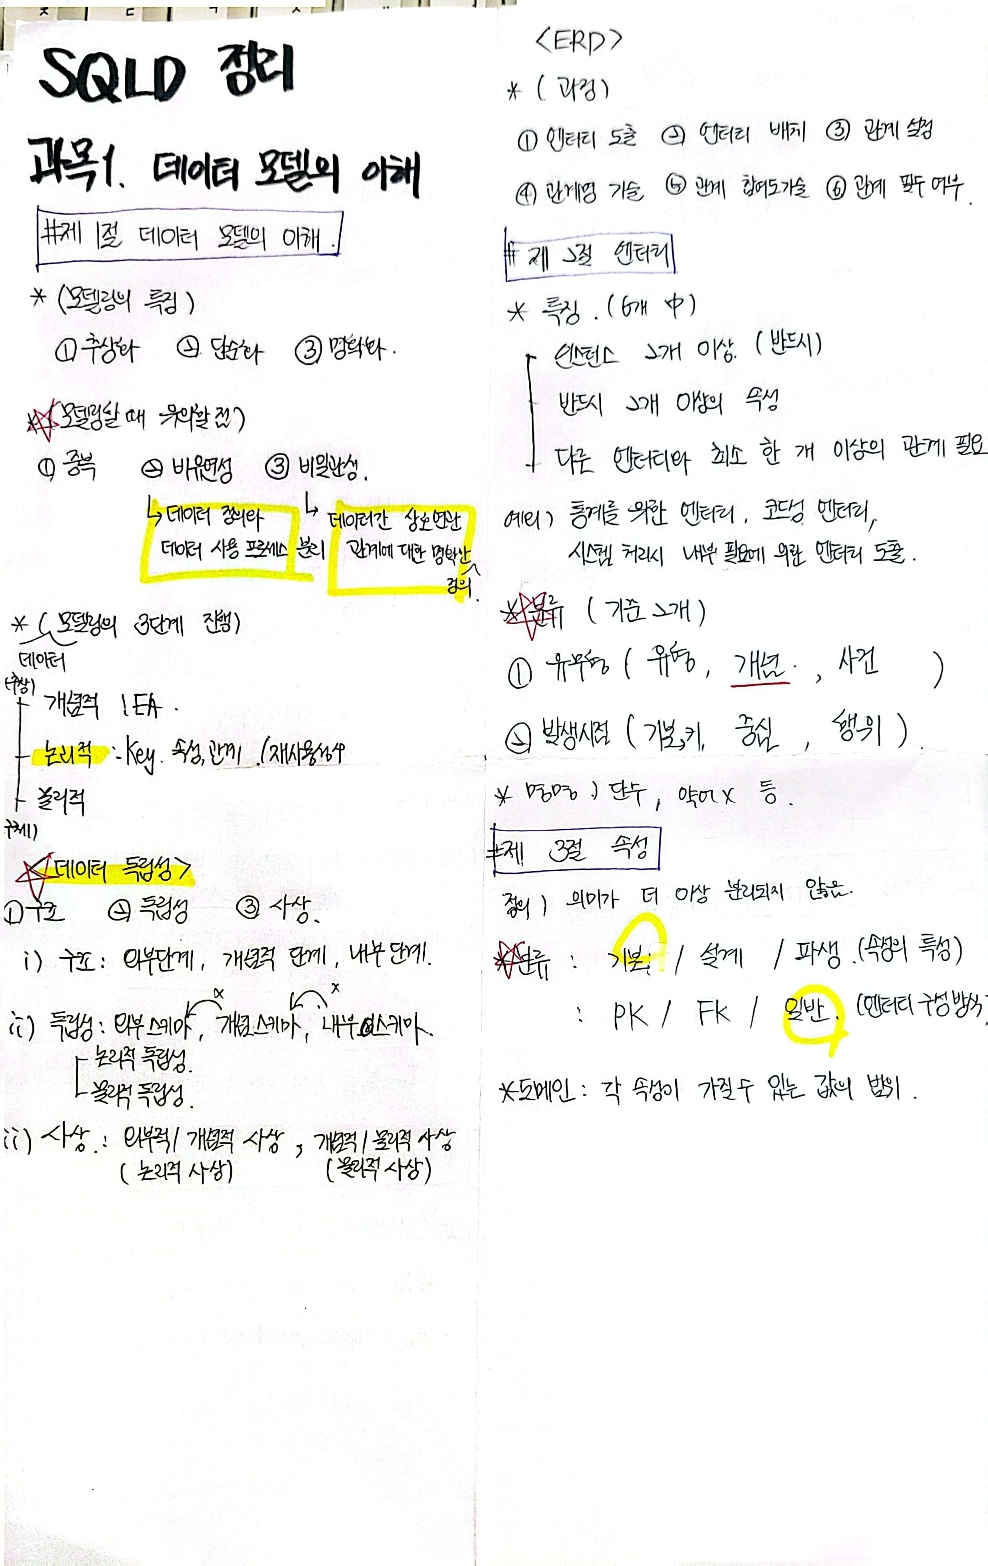 SQLD 정리
과목1. 데이터 모델의 이해
#제 1절 데이터 모델의 이해.
* (모델링의 특징)
① 추상화 ② 단순화 ③ 명확화.
☆(모델링할 때 유의할 점)
① 중복 ② 비유연성 ③ 비일관성.
↳ 데이터 정의와
데이터 사용 프로세스 분리
↳ 데이터간 상호 연관
관계에 대한 명확한
정의.
* (모델링의 3단계 진행)
데이터
(추상)
개념적 : EA.
논리적 : Key. 속성, 관계. (재사용성↑)
물리적
구체)
☆<데이터 독립성>
① 구조 ② 독립성 ③ 사상.
i) 구조 : 외부단계, 개념적 단계, 내부 단계.
x x
ii) 독립성 : 외부스키마, 개념스키마, 내부스키마.
논리적 독립성.
물리적 독립성.
ii) 사상 : 외부적/개념적 사상, 개념적/물리적 사상
(논리적 사상) (물리적 사상)
<ERD>
* (과정)
① 엔터티 도출 ② 엔터티 배치 ③ 관계 설정
④ 관계명 기술 ⑤ 관계 참여도기술 ⑥ 관계 필수 여부.
# 제 2절 엔터티
* 특징. (6개 中)
인스턴스 2개 이상. (반드시)
반드시 2개 이상의 속성
다른 엔터티와 최소 한 개 이상의 관계 필요
예외) 통계를 위한 엔터티, 코드성 엔터티,
시스템 처리시 내부 필요에 의한 엔터티 도출.
☆분류 (기준 2개)
① 유무형 (유형, 개념, 사건)
② 발생시점 (기본,키, 중심, 행위).
* 명명) 단수, 약어x 등.
#제 3절 속성
정의) 의미가 더 이상 분리되지 않음.
☆분류 : 기본 / 설계 / 파생. (속성의 특성)
: PK / FK / 일반. (엔터티 구성방식)
*도메인 : 각 속성이 가질 수 있는 값의 범위.